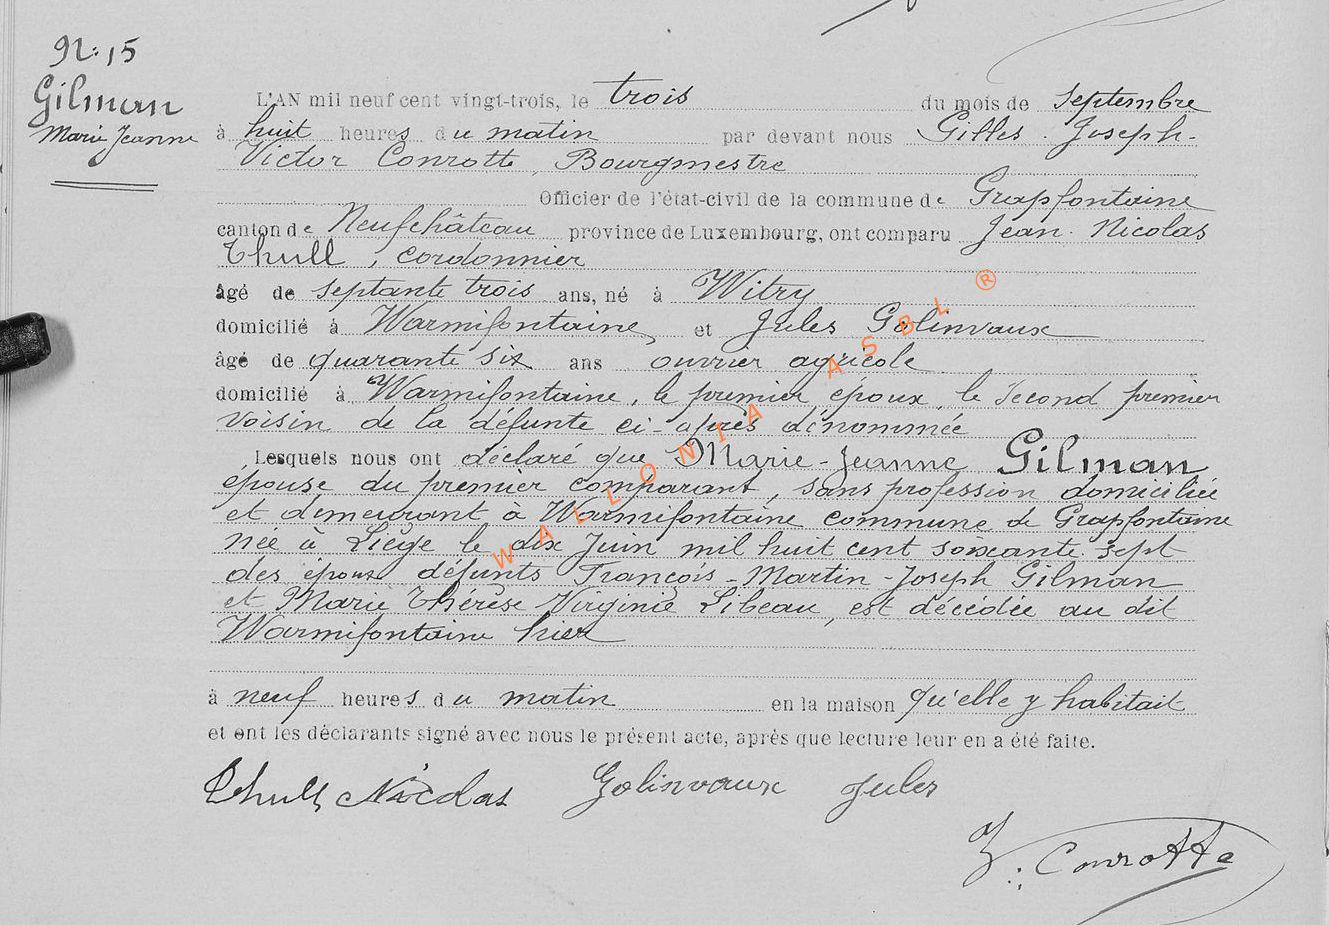 N: 15
Gilman
Marie Jeanne
L'AN mil neuf cent vingt-trois, le trois du mois de septembre
à huit heures du matin par devant nous Gilles-Joseph-
Victor Conrotte, Bourgmestre
Officier de l'état-civil de la commune de Grapfontaine
canton de Neufchâteau province de Luxembourg, ont comparu Jean-Nicolas
Thull, cordonnier
âgé de septante trois ans, né à Witry
domicilié à Warmifontaine et Jules Golinvaux
âgé de quarante six ans ouvrier agricole
domicilié à Warmifontaine, le premier époux, le second premier
voisin de la défunte ci-après dénommée
Lesquels nous ont déclaré que Marie-Jeanne Gilman
épouse du premier comparant, sans profession domiciliée
et demeurant à Warmifontaine commune de Grapfontaine
née à Liège le dix Juin mil huit cent soixante-sept
des époux défunts François-Martin-Joseph Gilman
et Marie Thérèse Virginie Libeau, est décédée au dit
Warmifontaine hier
à neuf heures du matin en la maison qu'elle y habitait
et ont les déclarants signé avec nous le présent acte, après que lecture leur en a été faite.
Thull Nicolas Golinvaux Jules
Conrotte
WALLONIA ASBL ®